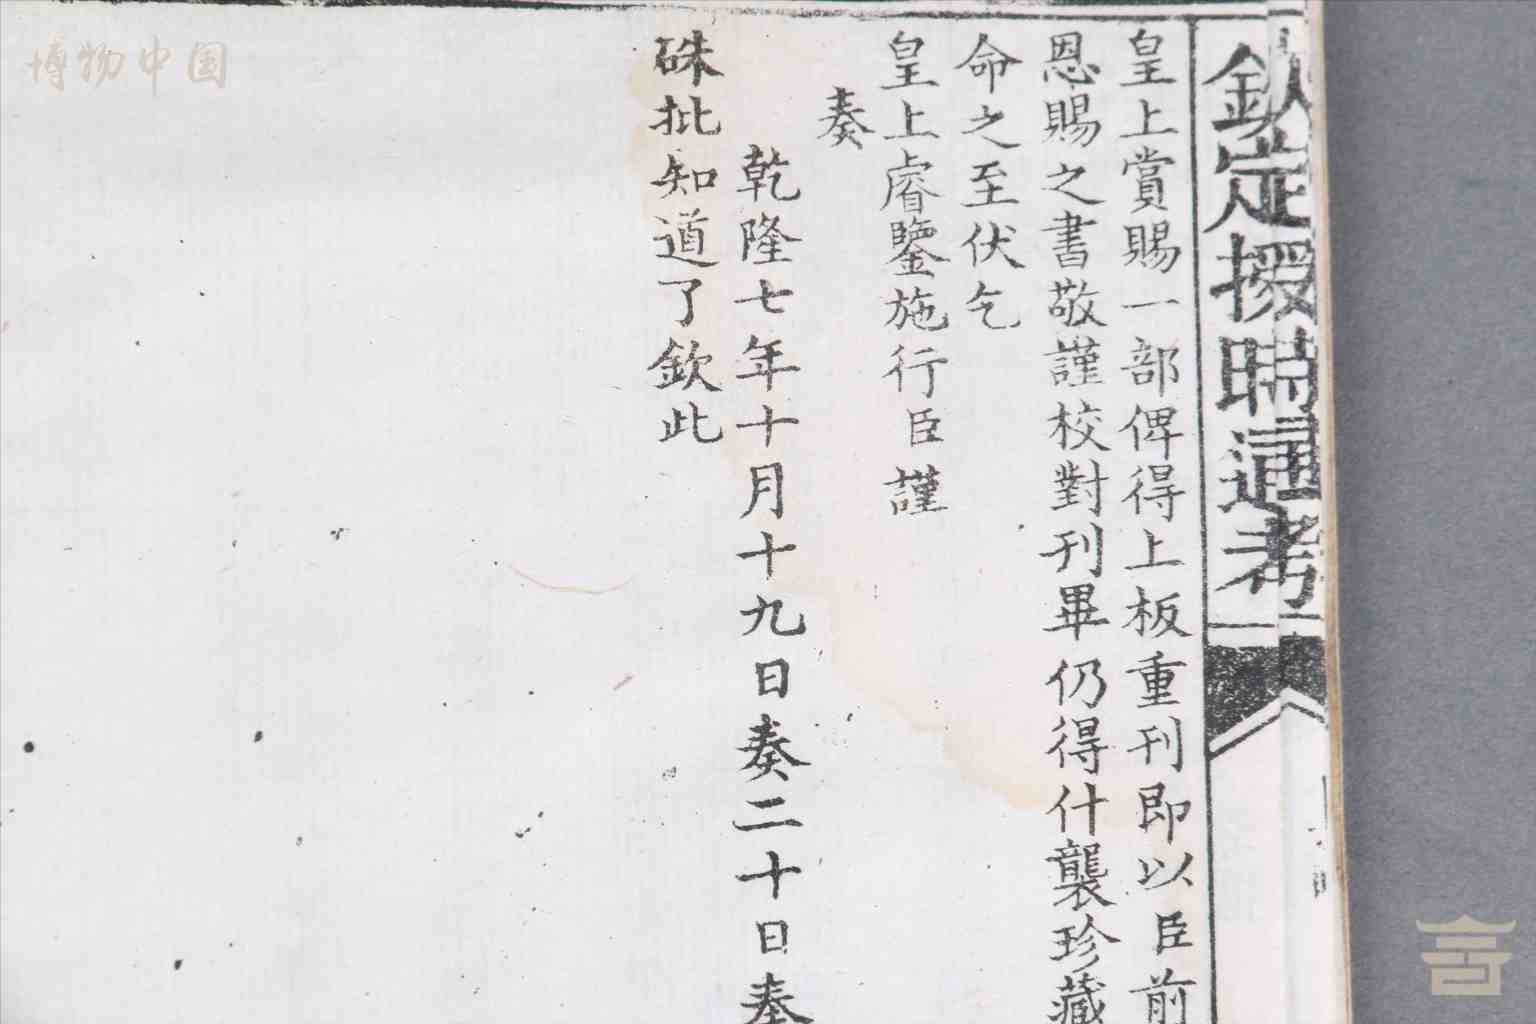 欽定授時通考
皇上賞賜一部俾得上板重刊即以臣前
恩賜之書敬謹校對刊畢仍得什襲珍藏
命之至伏乞
皇上睿鑒施行臣謹
奏
乾隆七年十月十九日奏二十日奏
硃批知道了欽此
博物中国